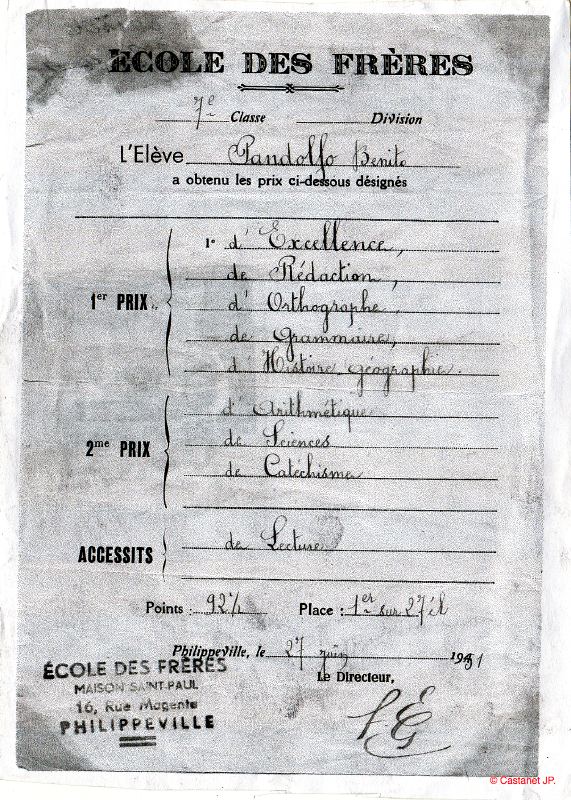 ÉCOLE DES FRÈRES
7e Classe Division
L'Elève Pandolfo Benito
a obtenu les prix ci-dessous désignés
1er PRIX
1° d'Excellence,
de Rédaction,
d'Orthographe,
de Grammaire,
d'Histoire géographie.
2me PRIX
d'Arithmétique
de Sciences
de Catéchisme
ACCESSITS
de Lecture
Points : 92½ Place : 1er sur 27 él
Philippeville, le 27 juin 1951
Le Directeur,
ÉCOLE DES FRÈRES
MAISON SAINT-PAUL
16, Rue Magenta
PHILIPPEVILLE
© Castanet JP.